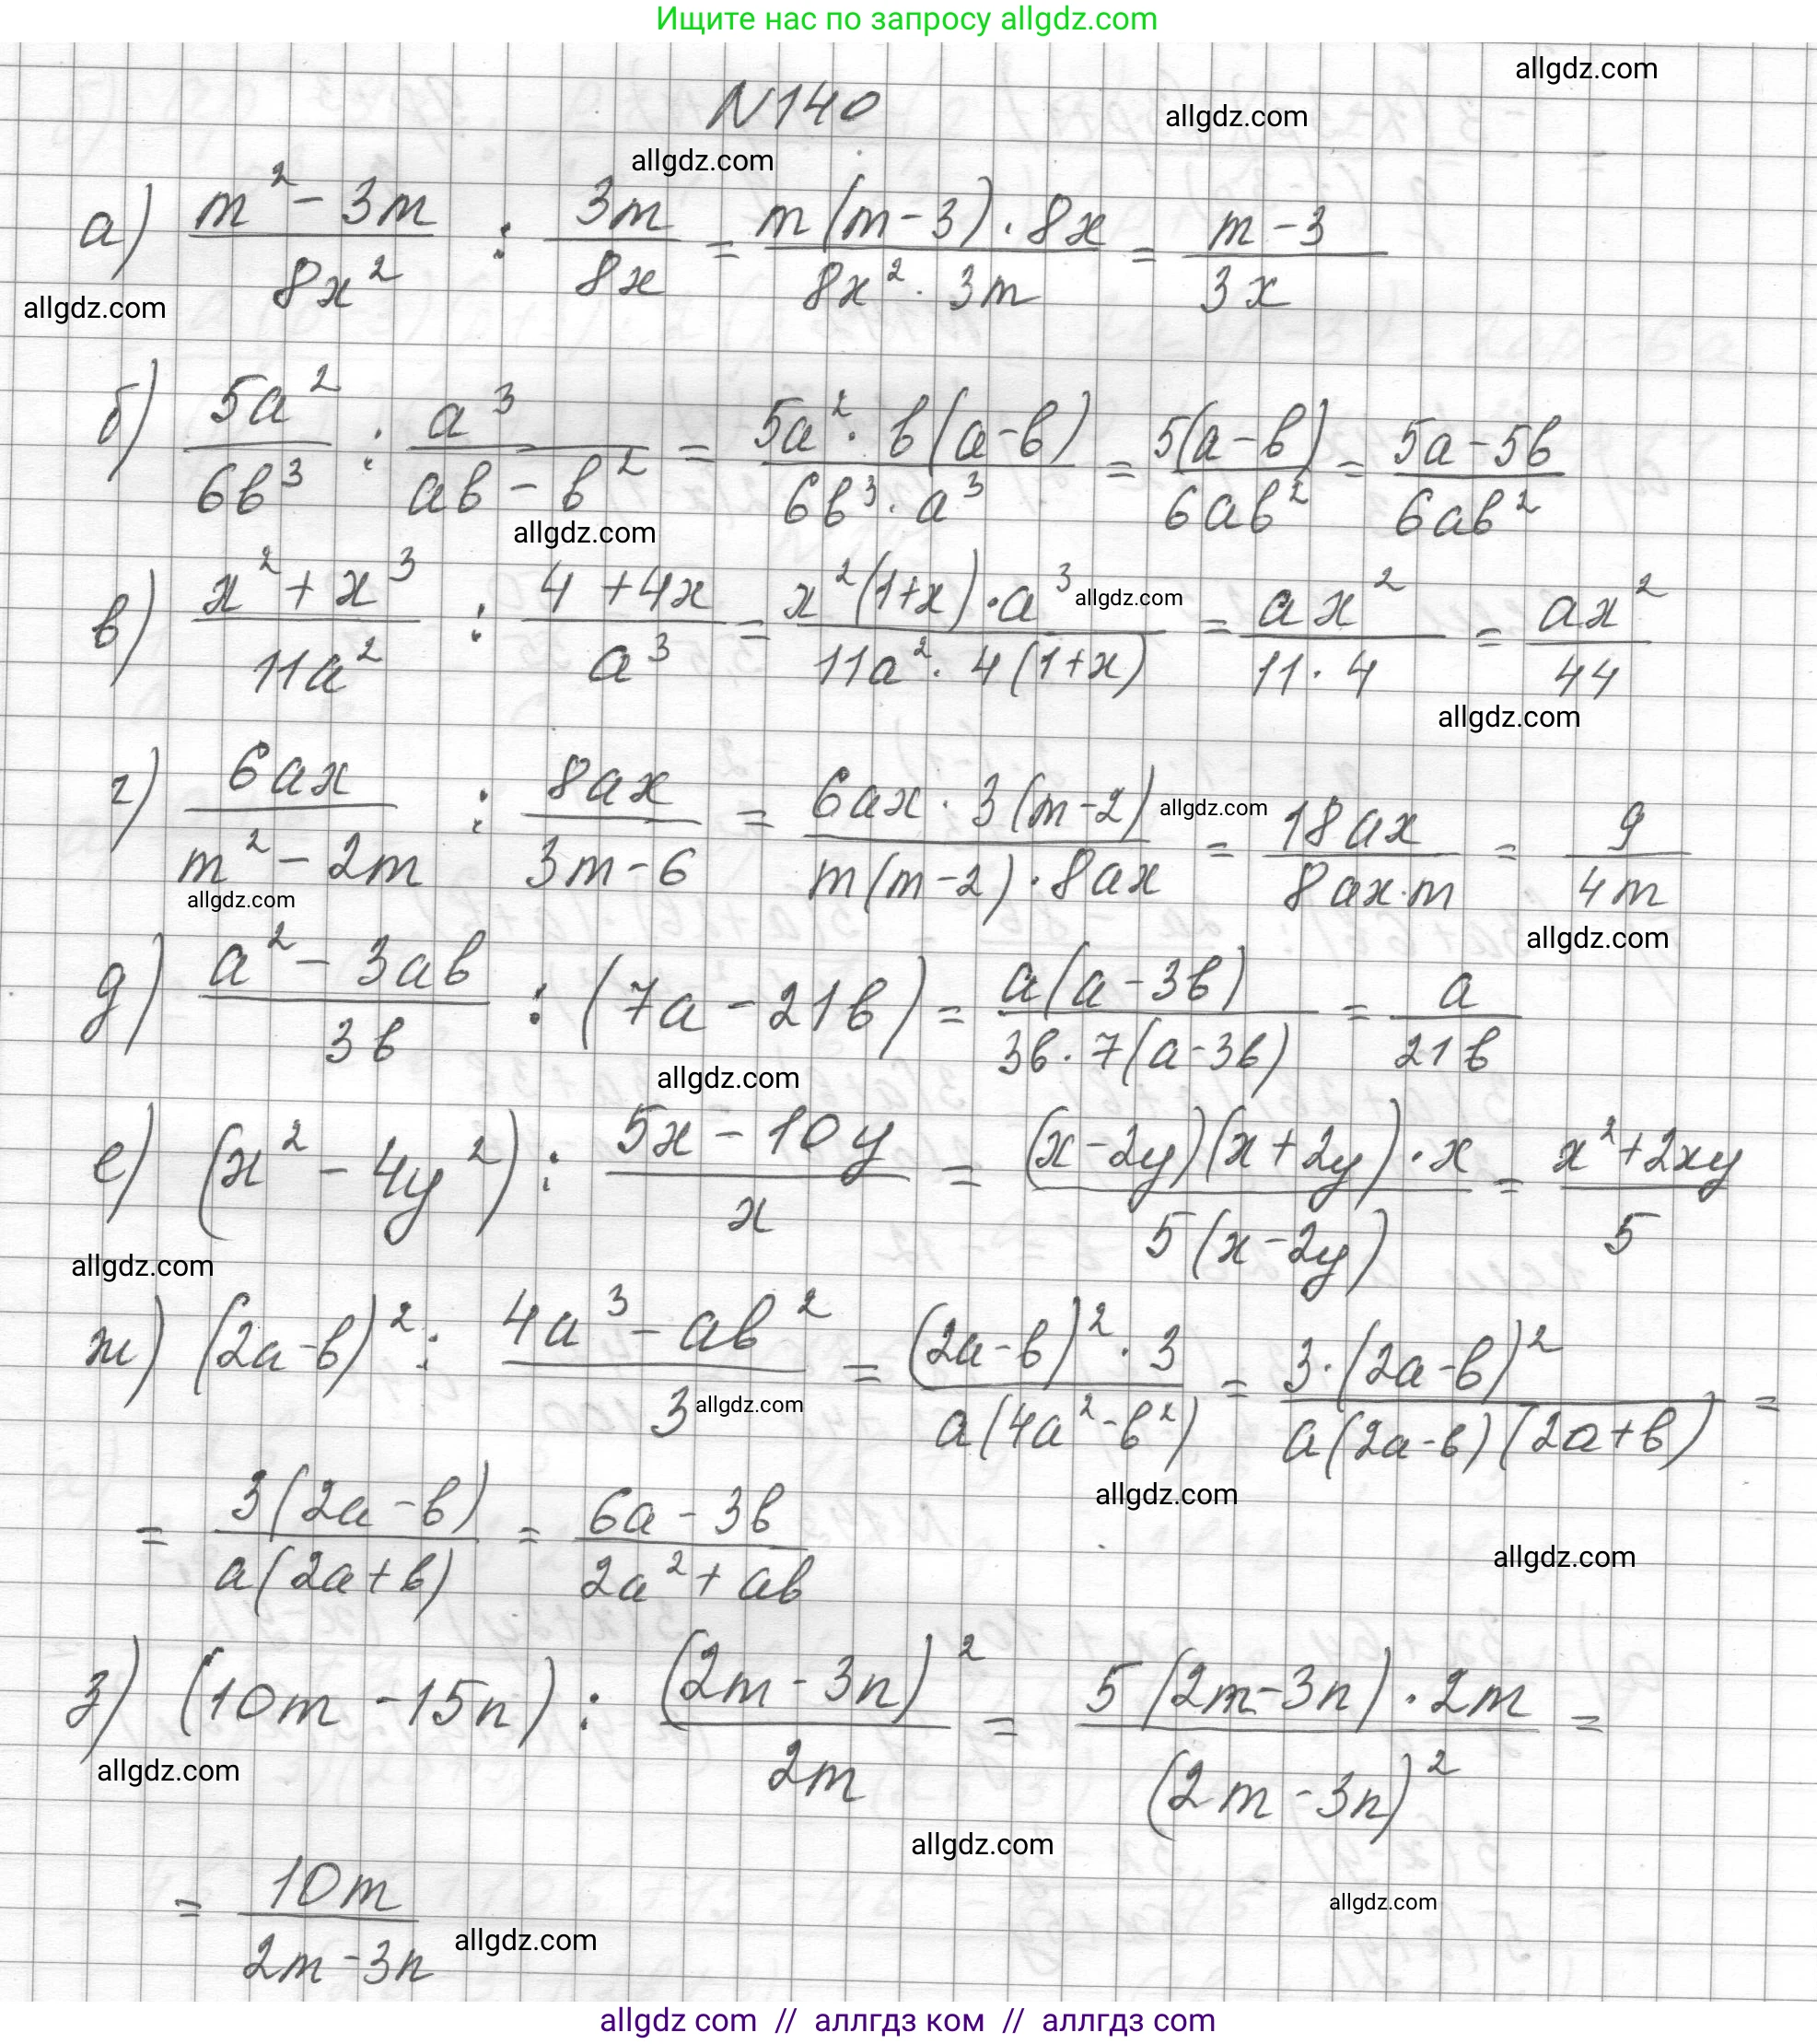 Ищите нас по запросу allgdz.com
allgdz.com
N140
allgdz.com
allgdz.com
а) (m² - 3m)/(8x²) : (3m)/(8x) = (m(m-3)·8x)/(8x²·3m) = (m-3)/(3x)
allgdz.com
б) (5a²)/(6b³) : (a³)/(ab-b²) = (5a²·b(a-b))/(6b³·a³) = (5(a-b))/(6ab²) = (5a-5b)/(6ab²)
allgdz.com
в) (x²+x³)/(11a²) : (4+4x)/(a³) = (x²(1+x)·a³)/(11a²·4(1+x)) = (ax²)/(11·4) = (ax²)/44
allgdz.com
allgdz.com
г) (6ax)/(m²-2m) : (8ax)/(3m-6) = (6ax·3(m-2))/(m(m-2)·8ax) = (18ax)/(8ax·m) = 9/(4m)
allgdz.com
allgdz.com
allgdz.com
д) (a²-3ab)/(3b) : (7a-21b) = (a(a-3b))/(3b·7(a-3b)) = a/(21b)
allgdz.com
е) (x²-4y²) : (5x-10y)/x = ((x-2y)(x+2y)·x)/(5(x-2y)) = (x²+2xy)/5
allgdz.com
ж) (2a-b)² : (4a³-ab²)/3 = ((2a-b)²·3)/(a(4a²-b²)) = (3·(2a-b)²)/(a(2a-b)(2a+b)) =
allgdz.com
allgdz.com
= (3(2a-b))/(a(2a+b)) = (6a-3b)/(2a²+ab)
allgdz.com
з) (10m-15n) : ((2m-3n)²)/(2m) = (5(2m-3n)·2m)/((2m-3n)²) =
allgdz.com
allgdz.com
= (10m)/(2m-3n)
allgdz.com
allgdz.com
allgdz com // аллгдз ком // аллгдз com